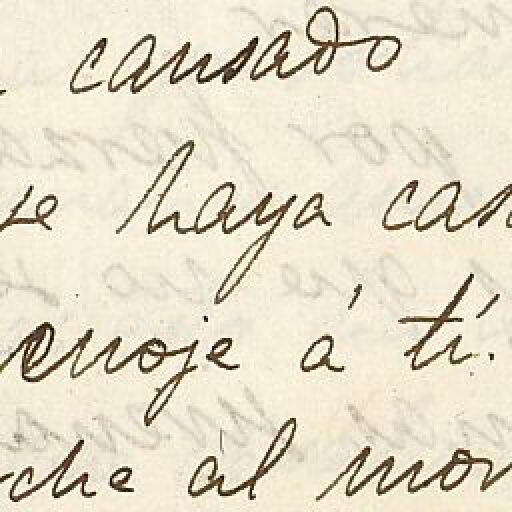 causado
haya cas
enoje á tí.
che al mon